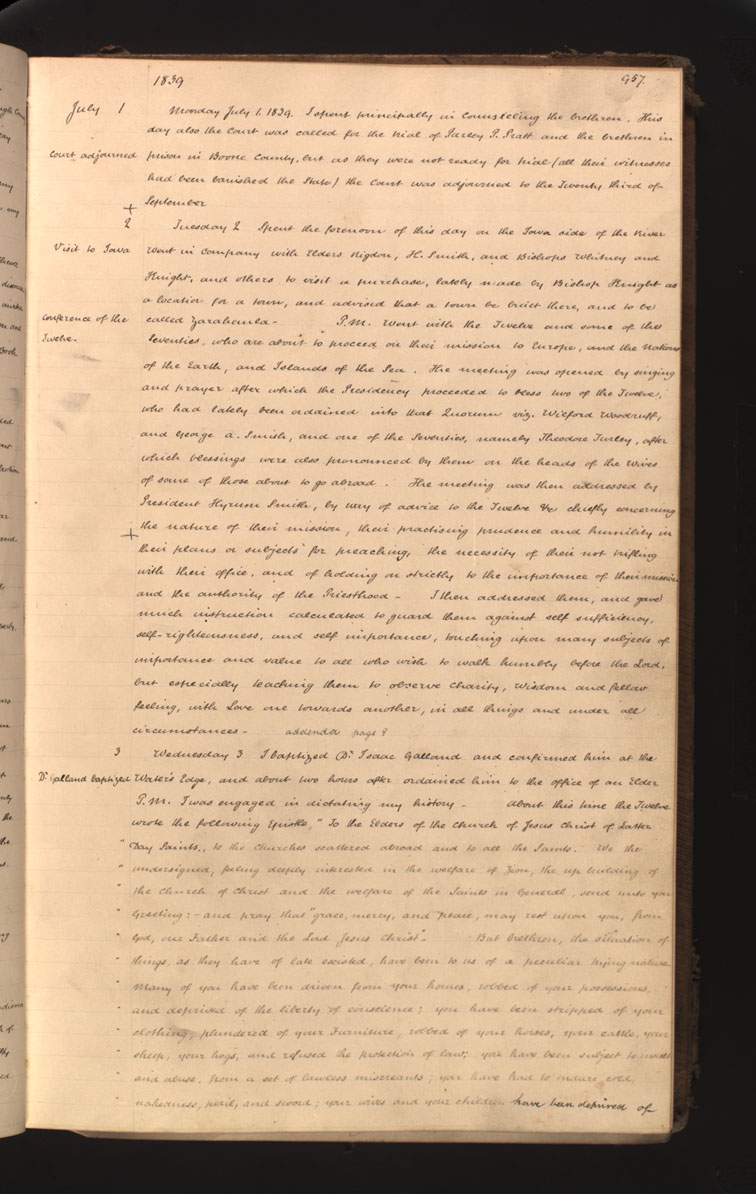 1839 957.
July 1 Monday July 1. 1839. I spent principally in counselling the brethren. This
day also the Court was called for the trial of Parley P. Pratt and the brethren in
Court adjourned prison in Boone County, but as they were not ready for trial (all their witnesses
had been banished the State) the Court was adjourned to the Twenty third of
September
+
2 Tuesday 2 Spent the forenoon of this day on the Iowa side of the River
Visit to Iowa Went in company with Elders Rigdon, H. Smith, and Bishops Whitney and
Knight, and others to visit a purchase, lately made by Bishop Knight as
a location for a town, and advised that a town be built there, and to be
Conference of the called Zarahemla- P.M. Went with the Twelve and some of the
Twelve. Seventies, who are about to proceed on their mission to Europe, and the Nations
of the Earth, and Islands of the Sea. The meeting was opened by singing
and prayer after which the Presidency proceeded to bless two of the Twelve,
who had lately been ordained into that Quorum viz. Wilford Woodruff,
and George A. Smith, and one of the Seventies, namely Theodore Turley, after
which blessings were also pronounced by them on the heads of the wives
of some of those about to go abroad. The meeting was then addressed by
President Hyrum Smith, by way of advice to the Twelve &c chiefly concerning
+ the nature of their mission, their practising prudence and humility in
their plans or subjects for preaching, the necessity of their not trifling
with their office, and of holding on strictly to the importance of their mission
and the authority of the Priesthood- I then addressed them, and gave
much instruction calculated to guard them against self sufficiency,
self-righteousness, and self importance, touching upon many subjects of
importance and value to all who wish to walk humbly before the Lord,
but especially teaching them to observe charity, Wisdom and fellow
feeling, with Love one towards another, in all things and under all
circumstances- addenda page 9
3 Wednesday 3 I baptized Dr Isaac Galland and confirmed him at the
Dr Galland baptized Water's Edge, and about two hours after ordained him to the office of an Elder
P.M. I was engaged in dictating my history- about this time the Twelve
wrote the following Epistle, "To the Elders of the Church of Jesus Christ of Latter
" Day Saints, to the Churches scattered abroad and to all the Saints. We the
" undersigned, feeling deeply interested in the welfare of Zion, the up building of
" the Church of Christ and the welfare of the Saints in General, send unto you
" Greeting:- and pray that "grace, mercy, and peace, may rest upon you, from
" God, our Father and the Lord Jesus Christ"- But brethren, the situation of
" things, as they have of late existed, have been to us of a peculiar trying nature
" Many of you have been driven from your homes, robbed of your possessions,
" and deprived of the liberty of conscience; you have been stripped of your
" clothing, plundered of your Furniture, robbed of your horses, your cattle, your
" sheep, your hogs, and refused the protection of law; you have been subject to insult
" and abuse, from a set of lawless miscreants; you have had to endure cold,
" nakedness, peril, and sword; your wives and your children have been deprived of